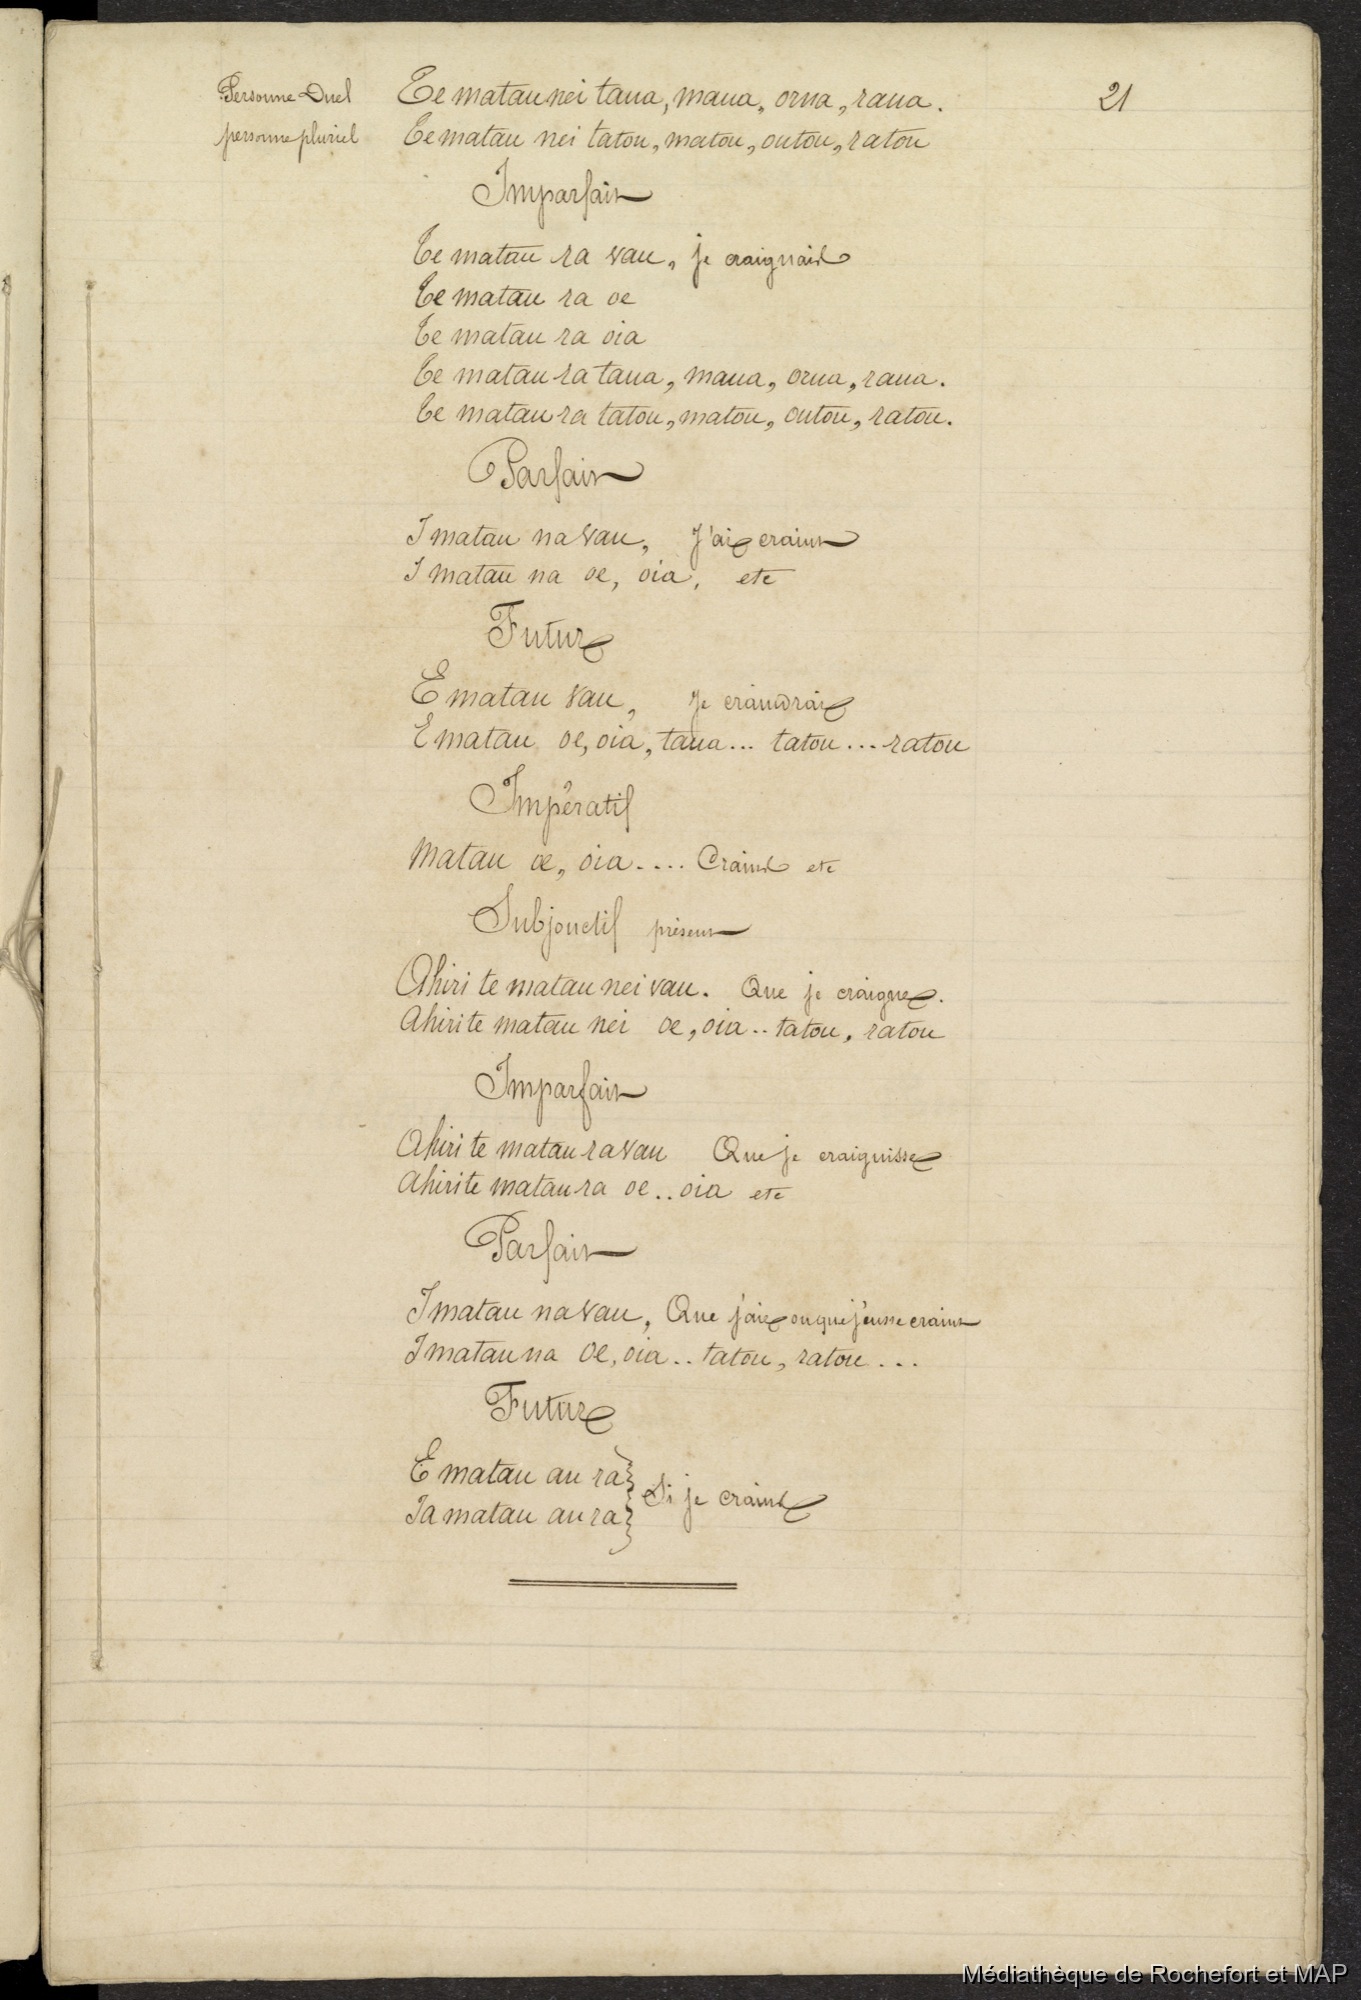 21
Personne Duel Te matau nei taua, maua, orua, raua.
personne pluriel Te matau nei tatou, matou, outou, ratou
Imparfait
Te matau ra vau, je craignais
Te matau ra oe
Te matau ra oia
Te matau ra taua, maua, orua, raua.
Te matau ra tatou, matou, outou, ratou.
Parfait
I matau na vau, J'ai craint
I matau na oe, oia, etc
Futur
E matau vau, je craindrai
E matau oe, oia, taua... tatou... ratou
Impératif
Matau oe, oia.... Crains etc
Subjonctif présent
Ahiri te matau nei vau. Que je craigne.
Ahiri te matau nei oe, oia.. tatou, ratou
Imparfait
Ahiri te matau ra vau Que je craignisse
Ahiri te matau ra oe.. oia etc
Parfait
I matau na vau, Que j'aie ou que j'eusse craint
I matau na oe, oia.. tatou, ratou...
Futur
E matau au ra
Ia matau au ra
Si je crains
Médiathèque de Rochefort et MAP